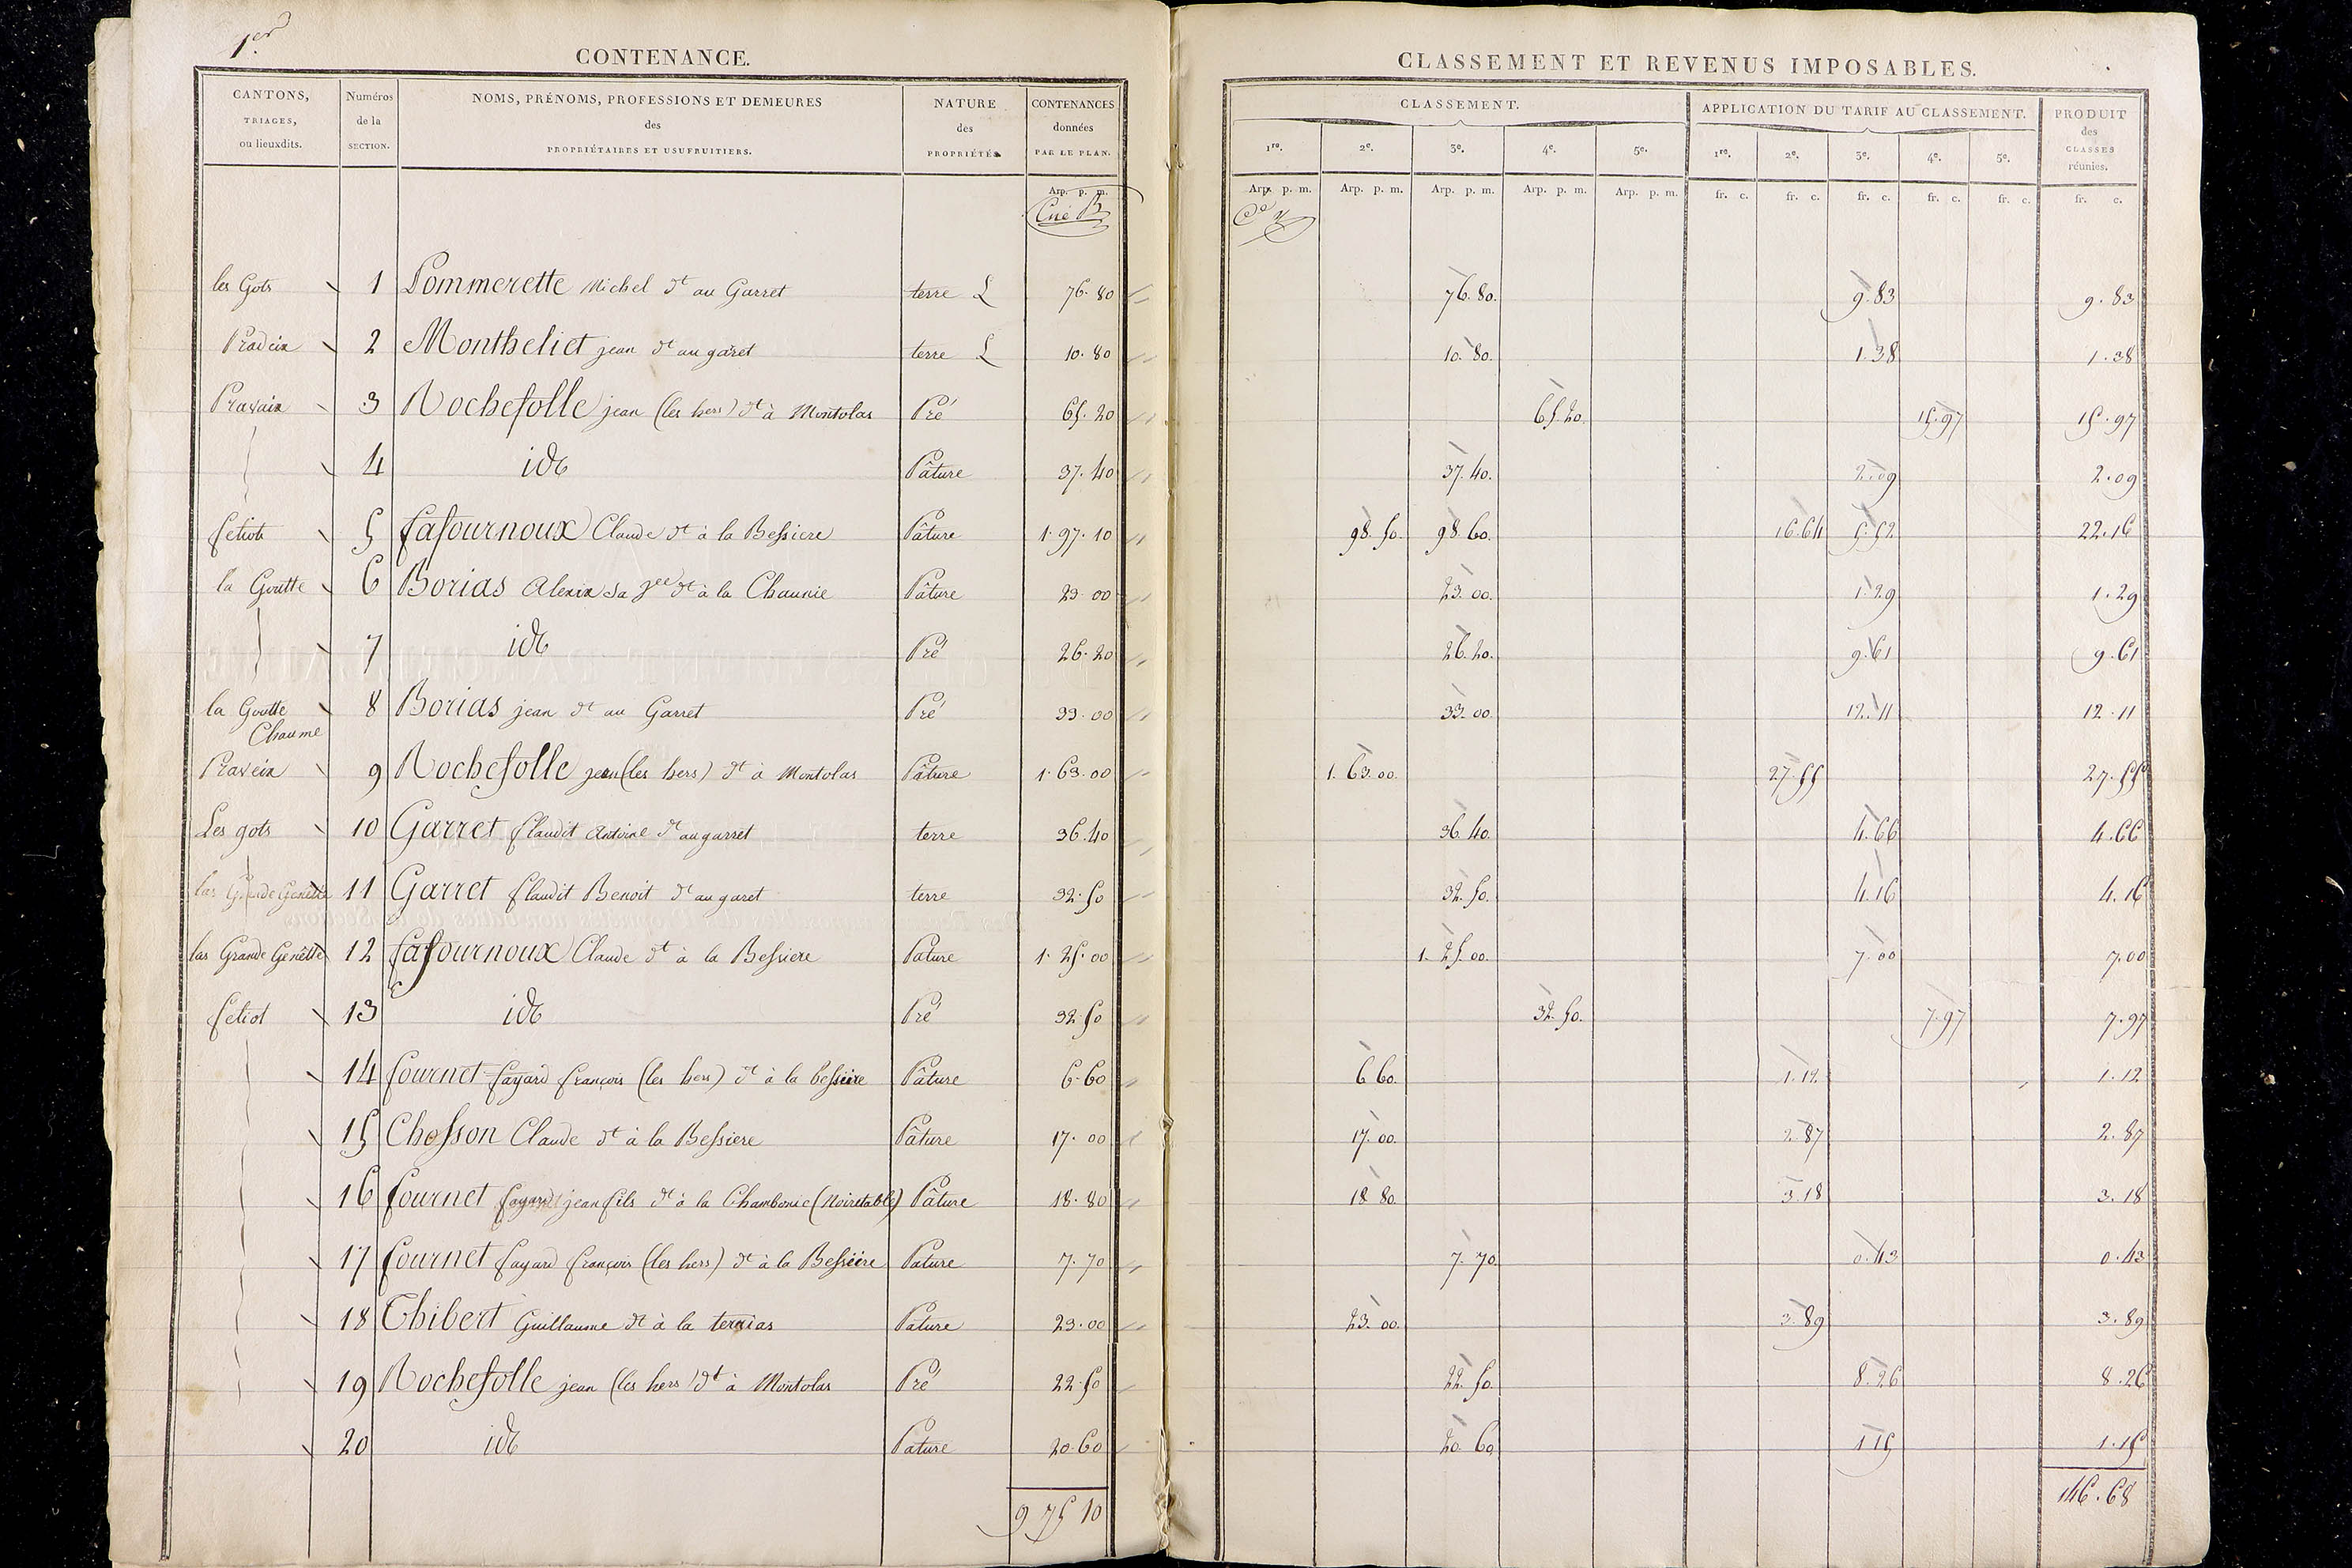 1er.
CONTENANCE.
CANTONS, TRIAGES, ou lieuxdits.
Numéros de la SECTION.
NOMS, PRÉNOMS, PROFESSIONS ET DEMEURES des PROPRIÉTAIRES ET USUFRUITIERS.
NATURE des PROPRIÉTÉS
CONTENANCES données PAR LE PLAN.
Arp. p. m.
CLASSEMENT ET REVENUS IMPOSABLES.
CLASSEMENT.
APPLICATION DU TARIF AU CLASSEMENT.
PRODUIT des CLASSES réunies.
1re. 2e. 3e. 4e. 5e. 1re. 2e. 3e. 4e. 5e.
Arp. p. m. Arp. p. m. Arp. p. m. Arp. p. m. Arp. p. m. fr. c. fr. c. fr. c. fr. c. fr. c. fr. c.
les Gots 1 Pommerette Michel dt au Garret terre L 76. 80 76. 80. 9. 83 9. 83
Pradeix 2 Montheliet jean dt au garet terre L 10. 80 10. 80. 1. 38 1. 38
Pravaix 3 Rochefolle jean (les hers) dt à Montolas Pré 65. 20 65. 20. 15. 97 15. 97
4 id Pâture 37. 40 37. 40. 2. 09 2. 09
fetiot 5 fafournoux Claude dt à la Bessiere Pâture 1. 97. 10 98. 50. 98. 60. 16. 64 5. 52 22. 16
la Goutte 6 Borias Alexix dt à la Chaunie Pâture 23 00 23. 00. 1. 29 1. 29
7 id Pré 26. 20 26. 20. 9. 61 9. 61
la Goutte Chaume 8 Borias jean dt au Garret Pré 33. 00 33. 00. 12. 11 12. 11
Praveix 9 Rochefolle jean (les hers) dt à Montolas Pâture 1. 63. 00 1. 63. 00. 27. 55 27. 55
Les gots 10 Garret flaudit Antoine dt au garret terre 36. 40 36. 40. 4. 66 4. 66
las Grande Genette 11 Garret flaudit Benoit dt au garet terre 32. 50 32. 50. 4. 16 4. 16
las Grande Genêtte 12 fafournoux Claude dt à la Bessiere Pature 1. 25. 00 1. 25. 00. 7. 00 7. 00
fetiot 13 id Pré 32. 50 32. 50. 7. 97 7. 97
14 fournet fayard françois (les hers) dt à la bessiére Pâture 6. 60 6 60. 1. 12 1. 12
15 Chosson Claude dt à la Bessiere Pâture 17. 00 17. 00. 2. 87 2. 87
16 fournet fayard jean fils dt à la Chambonie (Noiretable) Pâture 18. 80 18 80. 3. 18 3. 18
17 fournet fayard françois (les hers) dt à la Bessiére Pature 7. 70 7. 70. 0. 43 0. 43
18 Thibert Guillaume dt à la terrias Pature 23. 00 23. 00. 3. 89 3. 89
19 Rochefolle jean (les hers) dt à Montolas Pré 22. 50 22. 50. 8. 26 8. 26
20 id Pature 20. 60 20. 60. 1 15 1. 15
9 75 10 146. 68